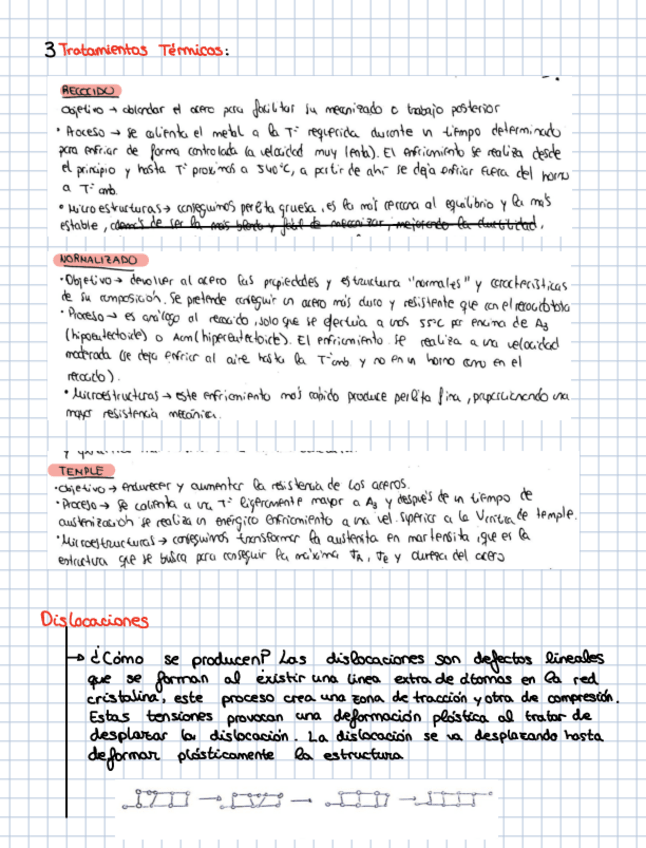 3 Tratamientos Térmicos:
RECOCIDO
Objetivo → ablandar el acero para facilitar su mecanizado o trabajo posterior
• Proceso → se calienta el metal a la Tª requerida durante un tiempo determinado
para enfriar de forma controlada (a velocidad muy lenta). El enfriamiento se realiza desde
el principio y hasta Tª proximas a 540°C, a partir de ahí se deja enfriar fuera del horno
a Tª amb.
• Microestructuras → conseguimos perlita gruesa, es la más cercana al equilibrio y la más
estable, además de ser la más blanda y fácil de mecanizar, mejorando la ductilidad.
NORMALIZADO
• Objetivo → devolver al acero las propiedades y estructura "normales" y características
de su composición. Se pretende conseguir un acero más duro y resistente que con el recocido total
• Proceso → es análogo al recocido, solo que se efectua a unos 55°C por encima de A3
(hipoeutectoide) o Acm (hipereutectoide). El enfriamiento se realiza a una velocidad
moderada (se deja enfriar al aire hasta la Tªamb y no en un horno como en el
recocido).
• Microestructuras → este enfriamiento más rápido produce perlita fina, proporcionando una
mayor resistencia mecánica.
TEMPLE
• Objetivo → endurecer y aumentar la resistencia de los aceros.
• Proceso → Se calienta a una Tª ligeramente mayor a A3 y después de un tiempo de
austenización se realiza un enérgico enfriamiento a una vel. superior a la Vcrítica de temple.
• Microestructuras → conseguimos transformar la austenita en martensita, que es la
estructura que se busca para conseguir la máxima σR, σE y dureza del acero
Dislocaciones
→ ¿Cómo se producen? Las dislocaciones son defectos lineales
que se forman al existir una línea extra de átomos en la red
cristalina, este proceso crea una zona de tracción y otra de compresión.
Estas tensiones provocan una deformación plástica al tratar de
desplazar la dislocación. La dislocación se va desplazando hasta
deformar plásticamente la estructura